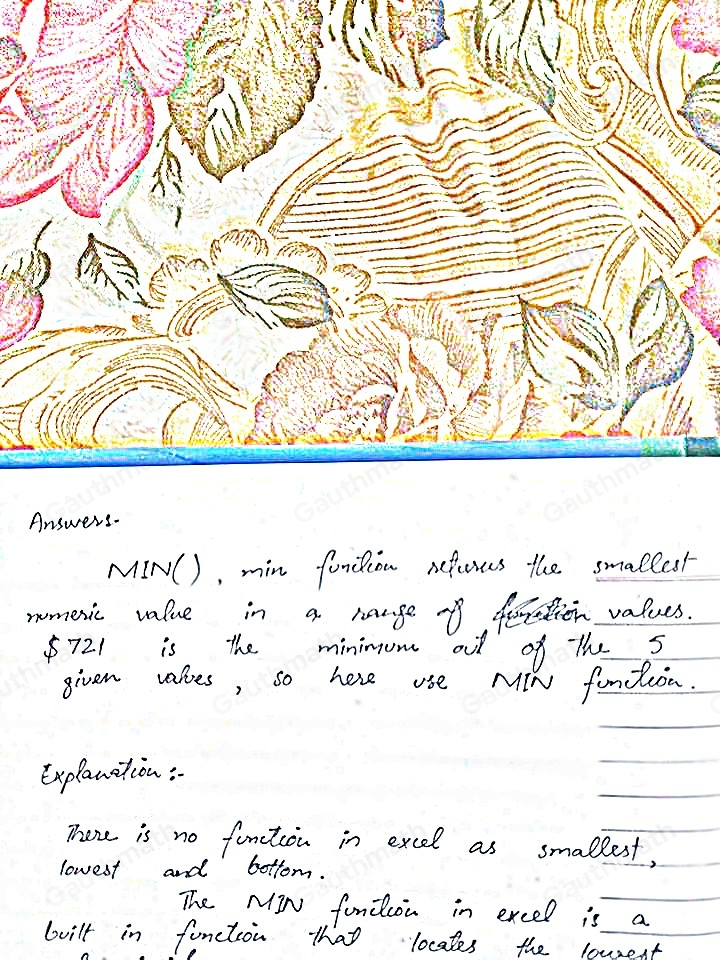 Answers-
MIN(), min function returns the smallest
numeric value in a range of values.
$721 is the minimum out of the 5
given values, so here use MIN function.
Explanation:-
There is no function in excel as smallest,
lowest and bottom.
The MIN function in excel is a
built in function that locates the lowest